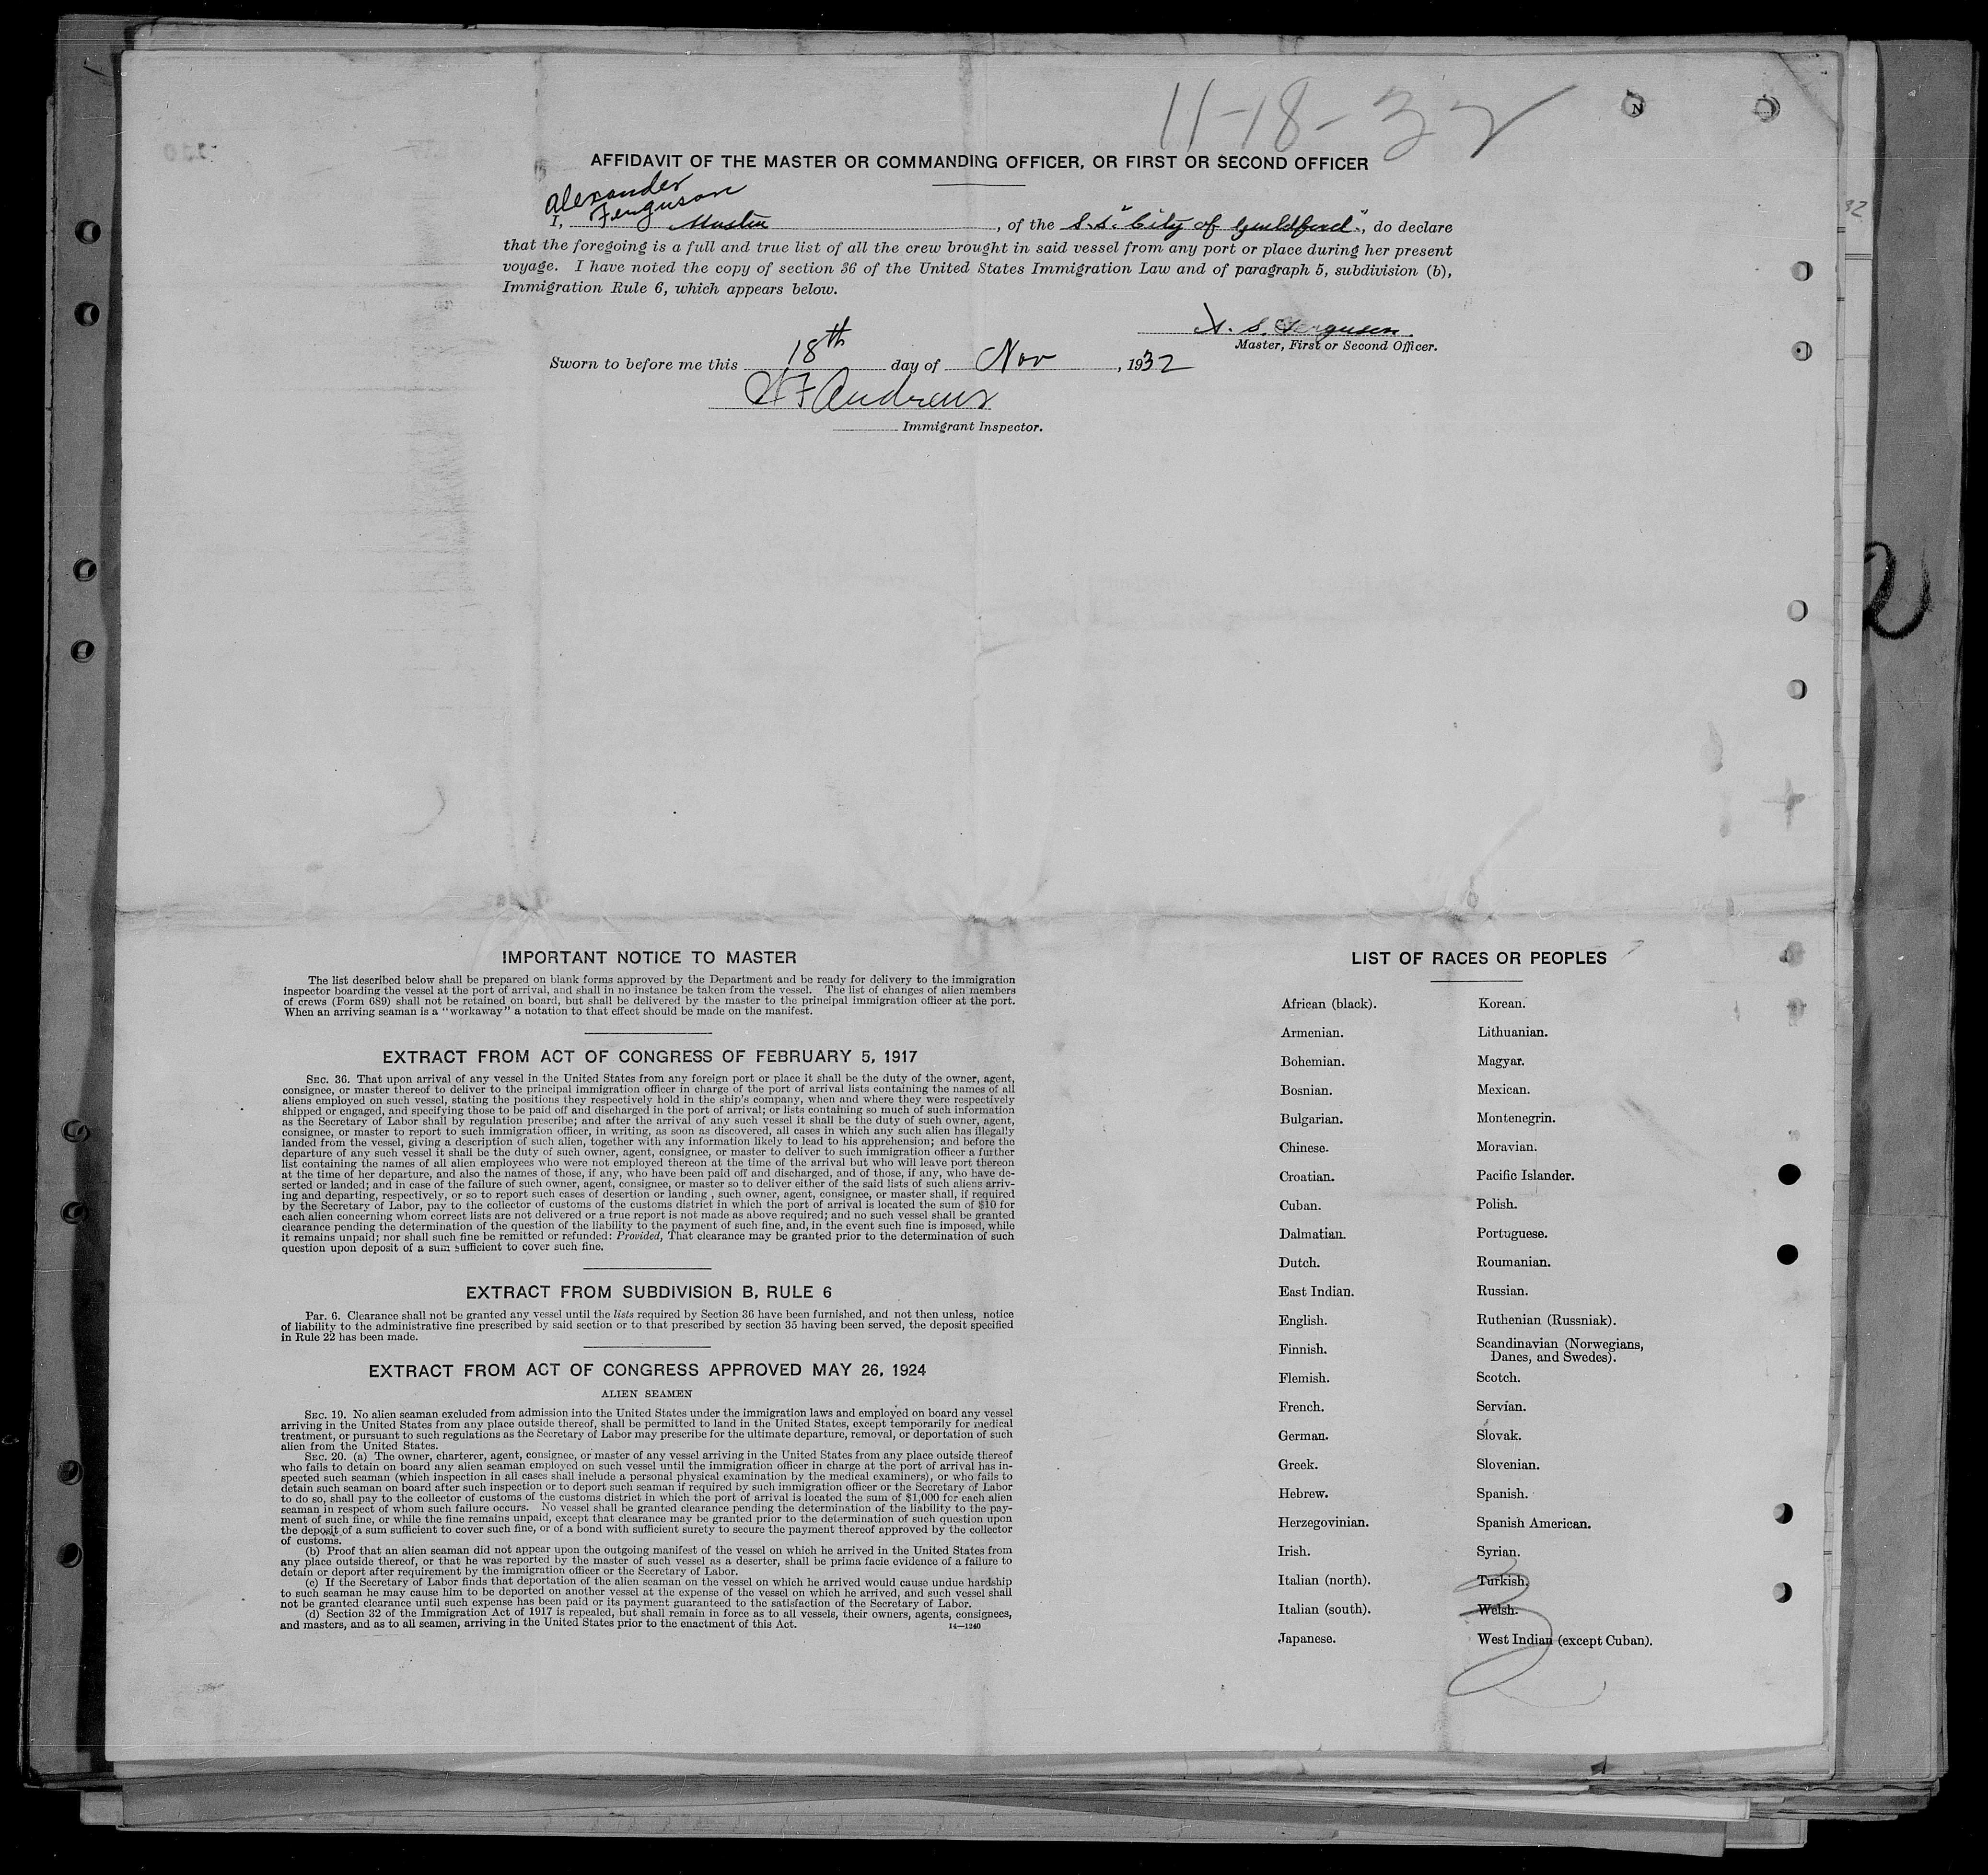 11-18-32
N
AFFIDAVIT OF THE MASTER OR COMMANDING OFFICER, OR FIRST OR SECOND OFFICER
Alexander
I, Ferguson Master, of the S.S. "City of Guildford", do declare
that the foregoing is a full and true list of all the crew brought in said vessel from any port or place during her present
voyage. I have noted the copy of section 36 of the United States Immigration Law and of paragraph 5, subdivision (b),
Immigration Rule 6, which appears below.
A. S. Ferguson
Master, First or Second Officer.
Sworn to before me this 18th day of Nov, 1932
Andrews
Immigrant Inspector.
32
2
IMPORTANT NOTICE TO MASTER
The list described below shall be prepared on blank forms approved by the Department and be ready for delivery to the immigration
inspector boarding the vessel at the port of arrival, and shall in no instance be taken from the vessel. The list of changes of alien members
of crews (Form 689) shall not be retained on board, but shall be delivered by the master to the principal immigration officer at the port.
When an arriving seaman is a "workaway" a notation to that effect should be made on the manifest.
EXTRACT FROM ACT OF CONGRESS OF FEBRUARY 5, 1917
SEC. 36. That upon arrival of any vessel in the United States from any foreign port or place it shall be the duty of the owner, agent,
consignee, or master thereof to deliver to the principal immigration officer in charge of the port of arrival lists containing the names of all
aliens employed on such vessel, stating the positions they respectively hold in the ship's company, when and where they were respectively
shipped or engaged, and specifying those to be paid off and discharged in the port of arrival; or lists containing so much of such information
as the Secretary of Labor shall by regulation prescribe; and after the arrival of any such vessel it shall be the duty of such owner, agent,
consignee, or master to report to such immigration officer, in writing, as soon as discovered, all cases in which any such alien has illegally
landed from the vessel, giving a description of such alien, together with any information likely to lead to his apprehension; and before the
departure of any such vessel it shall be the duty of such owner, agent, consignee, or master to deliver to such immigration officer a further
list containing the names of all alien employees who were not employed thereon at the time of the arrival but who will leave port thereon
at the time of her departure, and also the names of those, if any, who have been paid off and discharged, and of those, if any, who have de-
serted or landed; and in case of the failure of such owner, agent, consignee, or master so to deliver either of the said lists of such aliens arriv-
ing and departing, respectively, or so to report such cases of desertion or landing , such owner, agent, consignee, or master shall, if required
by the Secretary of Labor, pay to the collector of customs of the customs district in which the port of arrival is located the sum of $10 for
each alien concerning whom correct lists are not delivered or a true report is not made as above required; and no such vessel shall be granted
clearance pending the determination of the question of the liability to the payment of such fine, and, in the event such fine is imposed, while
it remains unpaid; nor shall such fine be remitted or refunded: Provided, That clearance may be granted prior to the determination of such
question upon deposit of a sum sufficient to cover such fine.
EXTRACT FROM SUBDIVISION B, RULE 6
Par. 6. Clearance shall not be granted any vessel until the lists required by Section 36 have been furnished, and not then unless, notice
of liability to the administrative fine prescribed by said section or to that prescribed by section 35 having been served, the deposit specified
in Rule 22 has been made.
EXTRACT FROM ACT OF CONGRESS APPROVED MAY 26, 1924
ALIEN SEAMEN
SEC. 19. No alien seaman excluded from admission into the United States under the immigration laws and employed on board any vessel
arriving in the United States from any place outside thereof, shall be permitted to land in the United States, except temporarily for medical
treatment, or pursuant to such regulations as the Secretary of Labor may prescribe for the ultimate departure, removal, or deportation of such
alien from the United States.
SEC. 20. (a) The owner, charterer, agent, consignee, or master of any vessel arriving in the United States from any place outside thereof
who fails to detain on board any alien seaman employed on such vessel until the immigration officer in charge at the port of arrival has in-
spected such seaman (which inspection in all cases shall include a personal physical examination by the medical examiners), or who fails to
detain such seaman on board after such inspection or to deport such seaman if required by such immigration officer or the Secretary of Labor
to do so, shall pay to the collector of customs of the customs district in which the port of arrival is located the sum of $1,000 for each alien
seaman in respect of whom such failure occurs. No vessel shall be granted clearance pending the determination of the liability to the pay-
ment of such fine, or while the fine remains unpaid, except that clearance may be granted prior to the determination of such question upon
the deposit of a sum sufficient to cover such fine, or of a bond with sufficient surety to secure the payment thereof approved by the collector
of customs.
(b) Proof that an alien seaman did not appear upon the outgoing manifest of the vessel on which he arrived in the United States from
any place outside thereof, or that he was reported by the master of such vessel as a deserter, shall be prima facie evidence of a failure to
detain or deport after requirement by the immigration officer or the Secretary of Labor.
(c) If the Secretary of Labor finds that deportation of the alien seaman on the vessel on which he arrived would cause undue hardship
to such seaman he may cause him to be deported on another vessel at the expense of the vessel on which he arrived, and such vessel shall
not be granted clearance until such expense has been paid or its payment guaranteed to the satisfaction of the Secretary of Labor.
(d) Section 32 of the Immigration Act of 1917 is repealed, but shall remain in force as to all vessels, their owners, agents, consignees,
and masters, and as to all seamen, arriving in the United States prior to the enactment of this Act.
14—1240
LIST OF RACES OR PEOPLES
African (black).
Armenian.
Bohemian.
Bosnian.
Bulgarian.
Chinese.
Croatian.
Cuban.
Dalmatian.
Dutch.
East Indian.
English.
Finnish.
Flemish.
French.
German.
Greek.
Hebrew.
Herzegovinian.
Irish.
Italian (north).
Italian (south).
Japanese.
Korean.
Lithuanian.
Magyar.
Mexican.
Montenegrin.
Moravian.
Pacific Islander.
Polish.
Portuguese.
Roumanian.
Russian.
Ruthenian (Russniak).
Scandinavian (Norwegians,
Danes, and Swedes).
Scotch.
Servian.
Slovak.
Slovenian.
Spanish.
Spanish American.
Syrian.
Turkish.
Welsh.
West Indian (except Cuban).